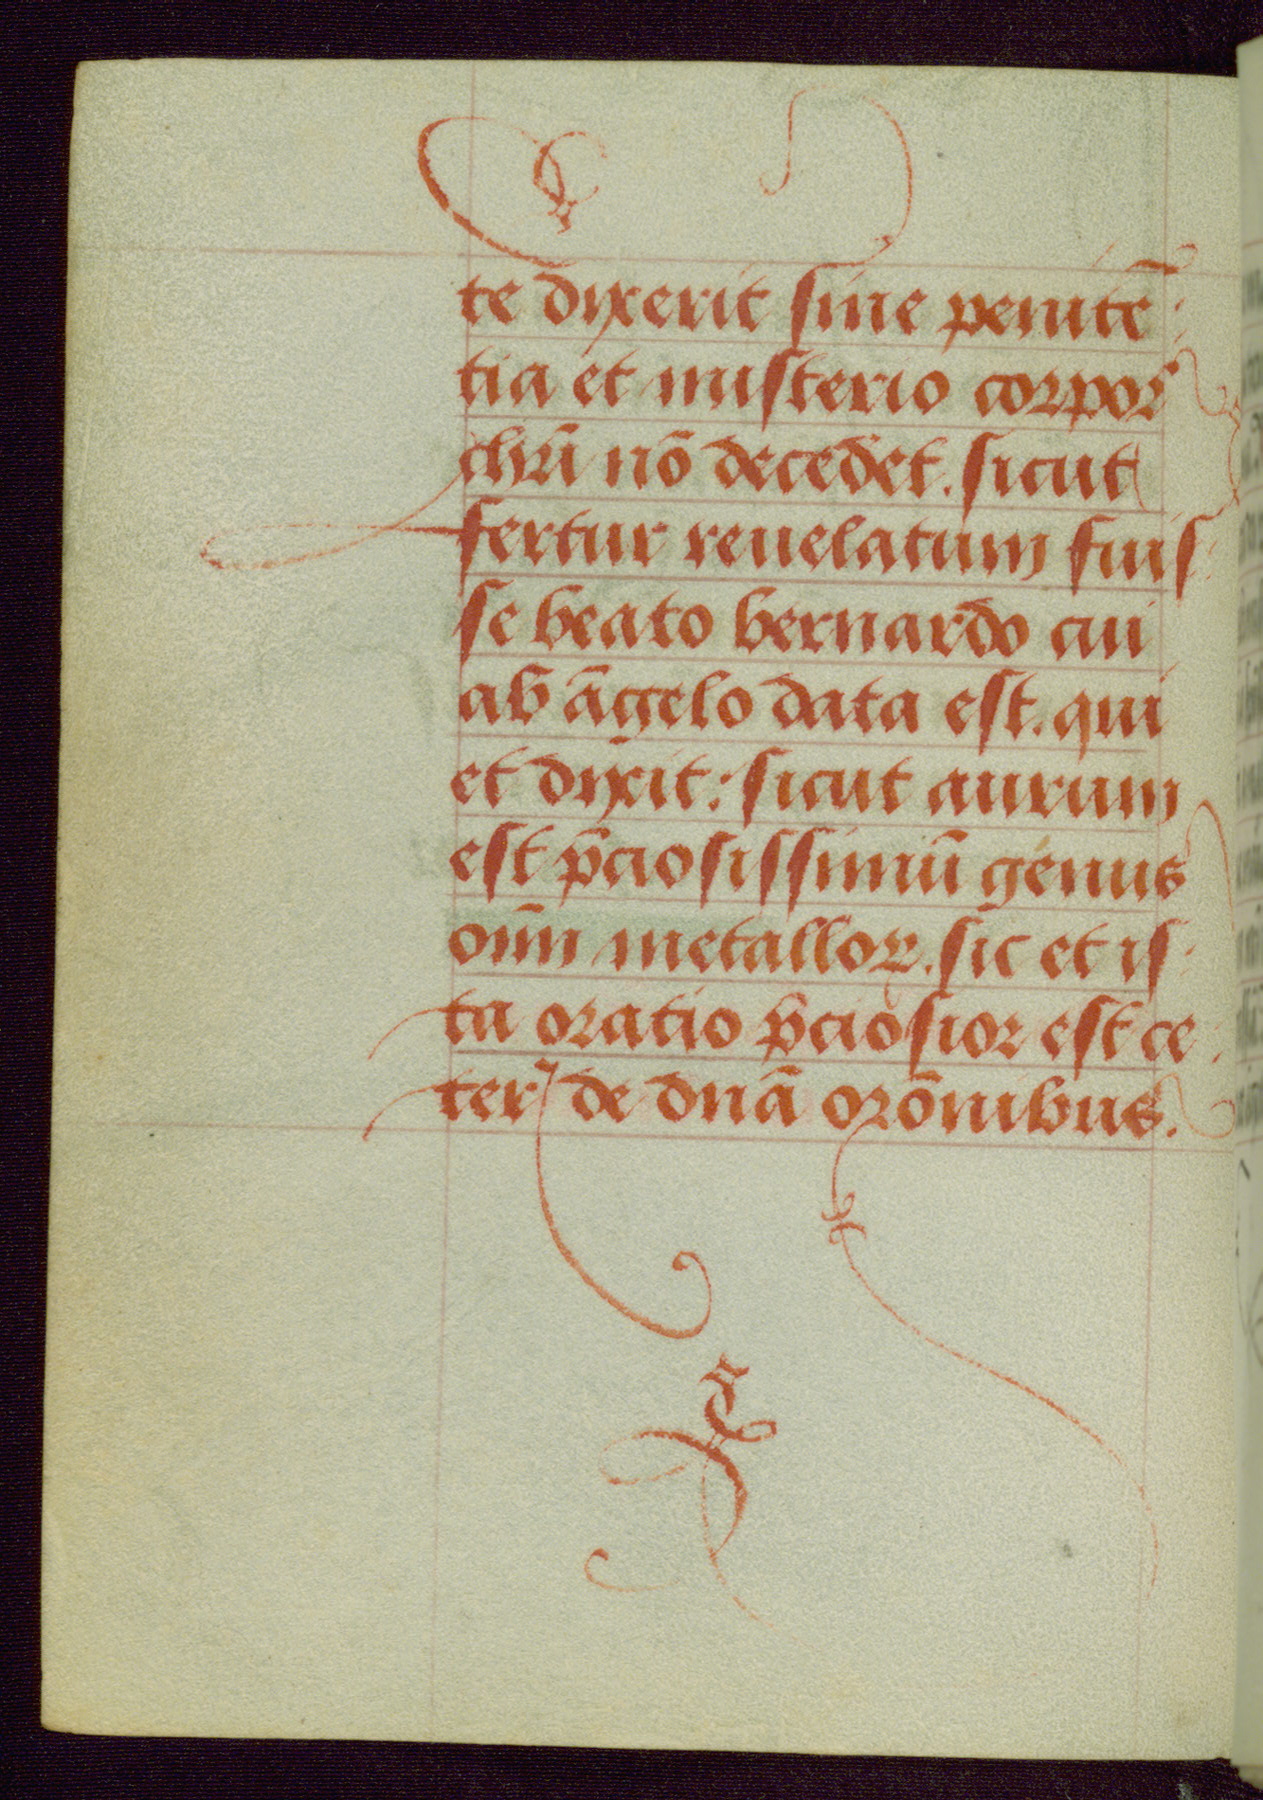 te dixerit sine penitē
tia et misterio corpor̄
chrī nō decedet. sicut
fertur reuelatum fuis
se beato bernardo cui
ab āgelo data est. qui
et dixit: sicut aurum
est p̄ciosissimū genus
om̄ metalloꝝ. sic et is
ta oratio p̄ciosior est ce
teris de dn̄a orōnibus.